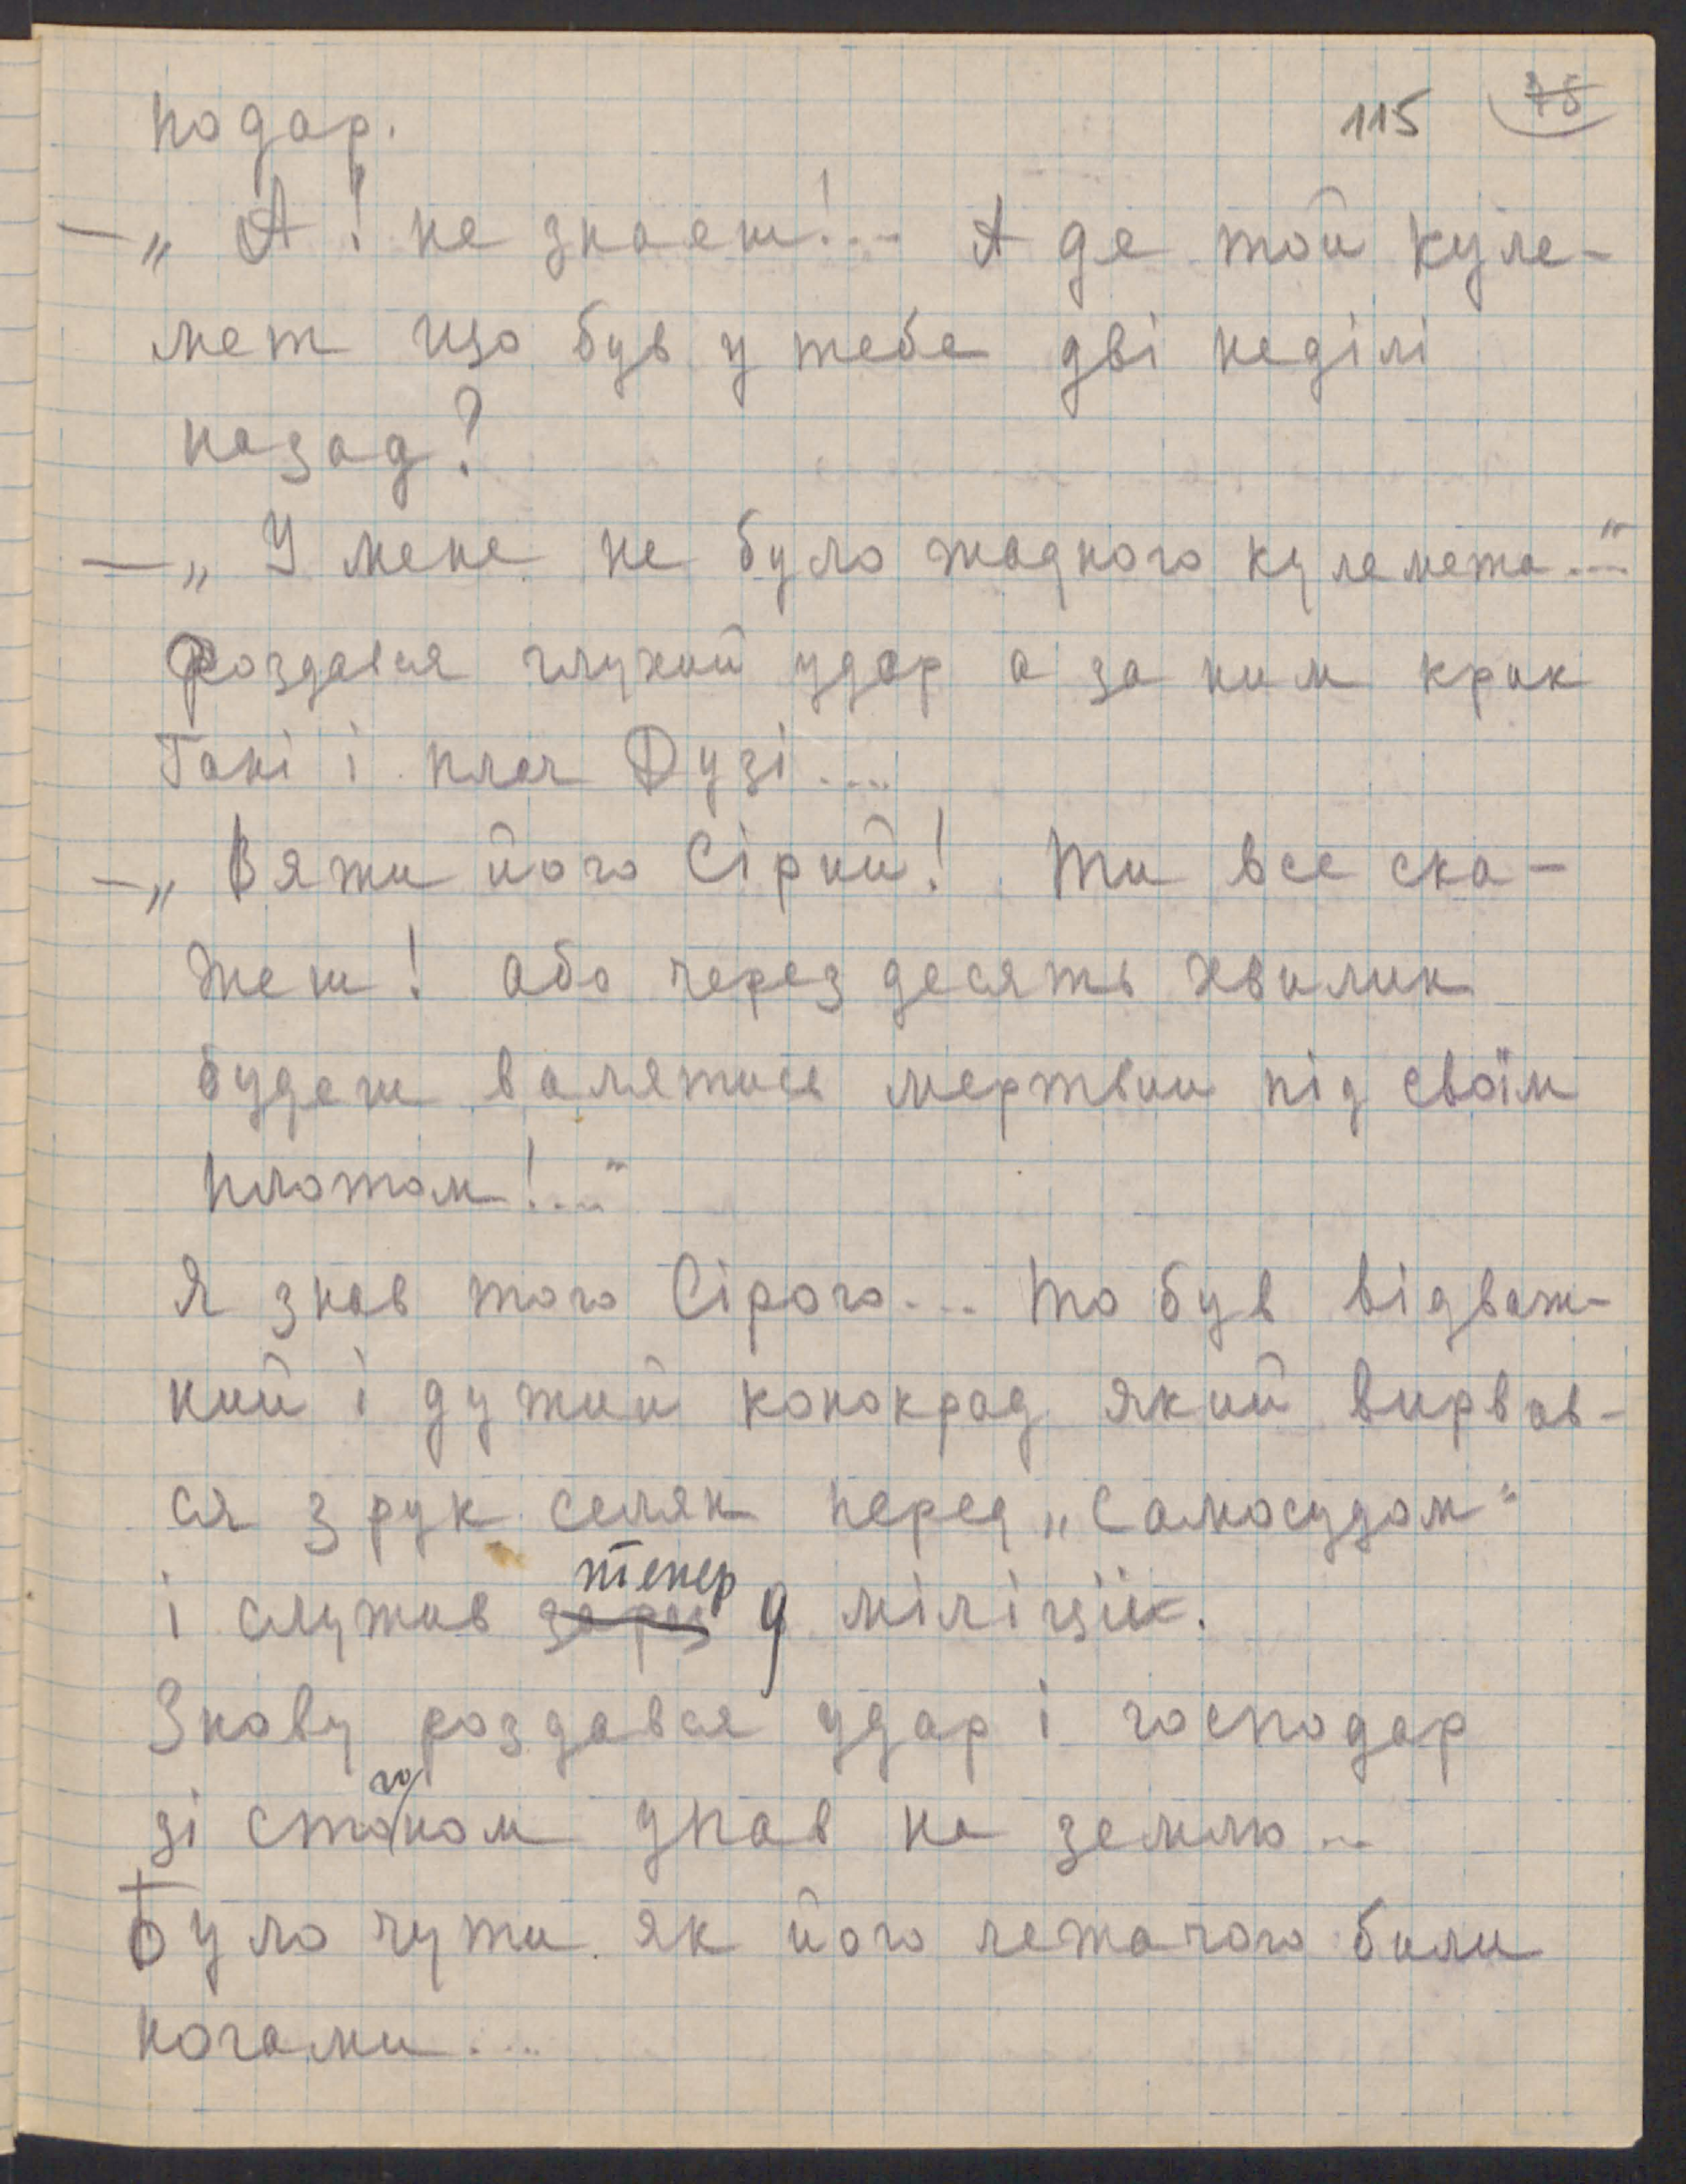 115 75
подар.
— „ А! не знаєш!... А де той куле-
мет що був у тебе дві неділі
назад?
— „ У мене не було жадного кулемета...“
Роздався глухий удар а за ним крик
Гані і плач Дузі....
— „ Вяжи його Сірий! Ти все ска-
жеш! або через десять хвилин
будеш валятись мертвим під своїм
плотом!...“
Я знав того Сірого... То був відваж-
ний і дужий конокрад який вирвав-
ся з рук селян перед „самосудом“
тепер
і служив зараз у міліції.
Знову роздався удар і господар
го
зі стоном упав на землю...
Було чути як його лежачого били
ногами....